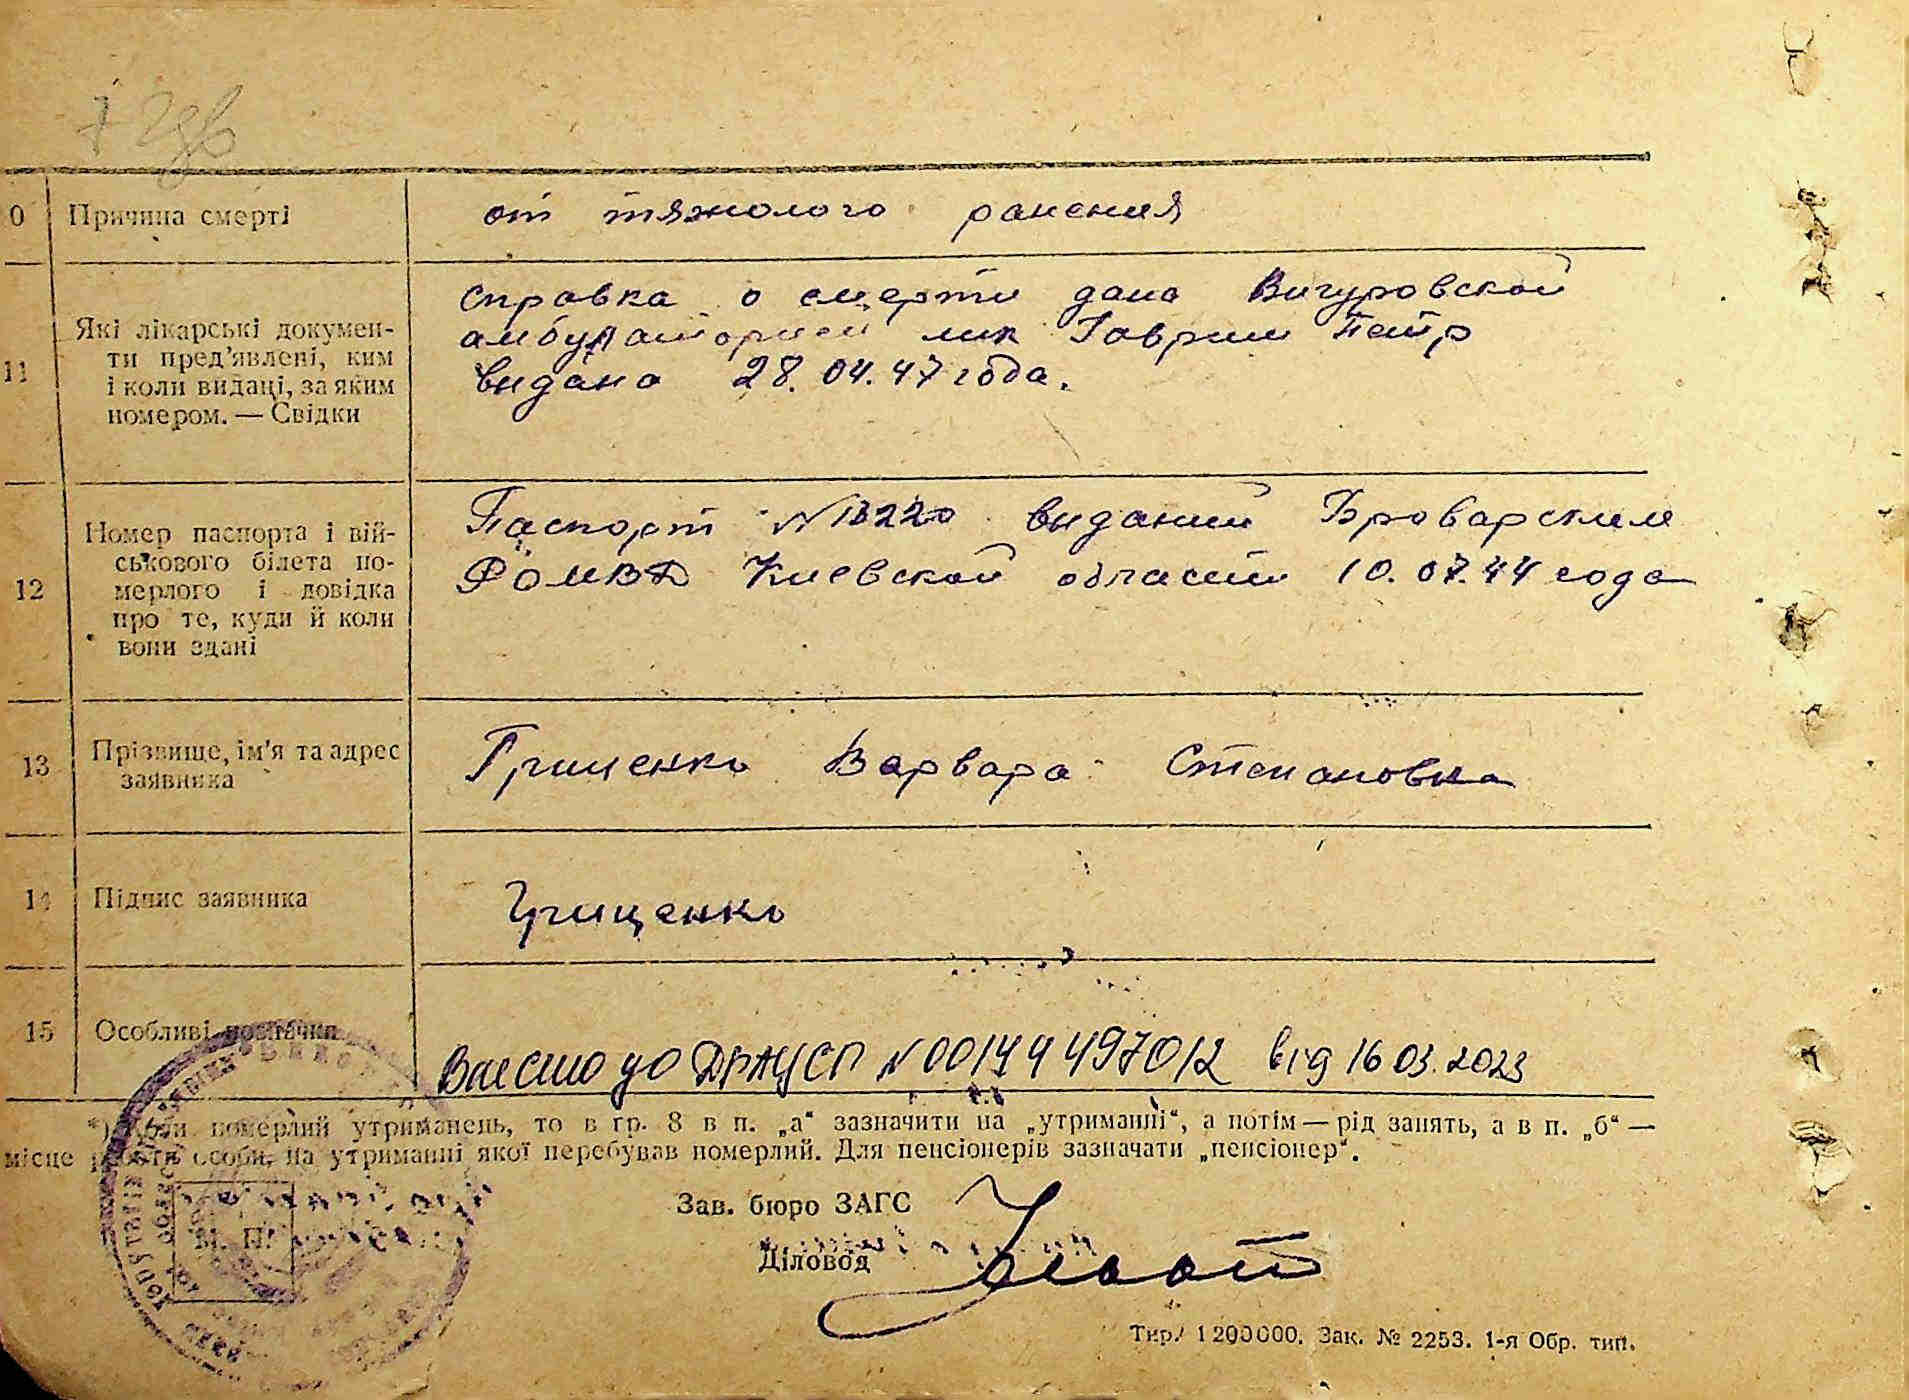 0 Причина смерті от тяжолого ранения
11 Які лікарські докумен-
ти пред'явлені, ким
і коли видані, за яким
номером. — Свідки
Справка о смерти дана Вигуровской
амбулаторией лик Гаврил Петр
видана 28.04.47 года.
12 Номер паспорта і вій-
ськового білета по-
мерлого і довідка
про те, куди й коли
вони здані
Паспорт видании Броварским
РОМВД Киевской области 10.07.44 года
13 Прізвище, ім'я та адрес
заявника
Гриценко Варвара Степановна
14 Підпис заявника Гриценко
15 Особливі позначки
Внесено до ДРАЦСГ N 00144497012 від 16 03.2023
*) Коли померлий утриманець, то в гр. 8 в п. „а“ зазначити на „утриманні“, а потім — рід занять, а в п. „б“ —
місце роботи особи, на утриманні якої перебував померлий. Для пенсіонерів зазначати „пенсіонер“.
Зав. бюро ЗАГС
М. П.
Діловод
Тир. 1200000. Зак. № 2253. 1-я Обр. тип.